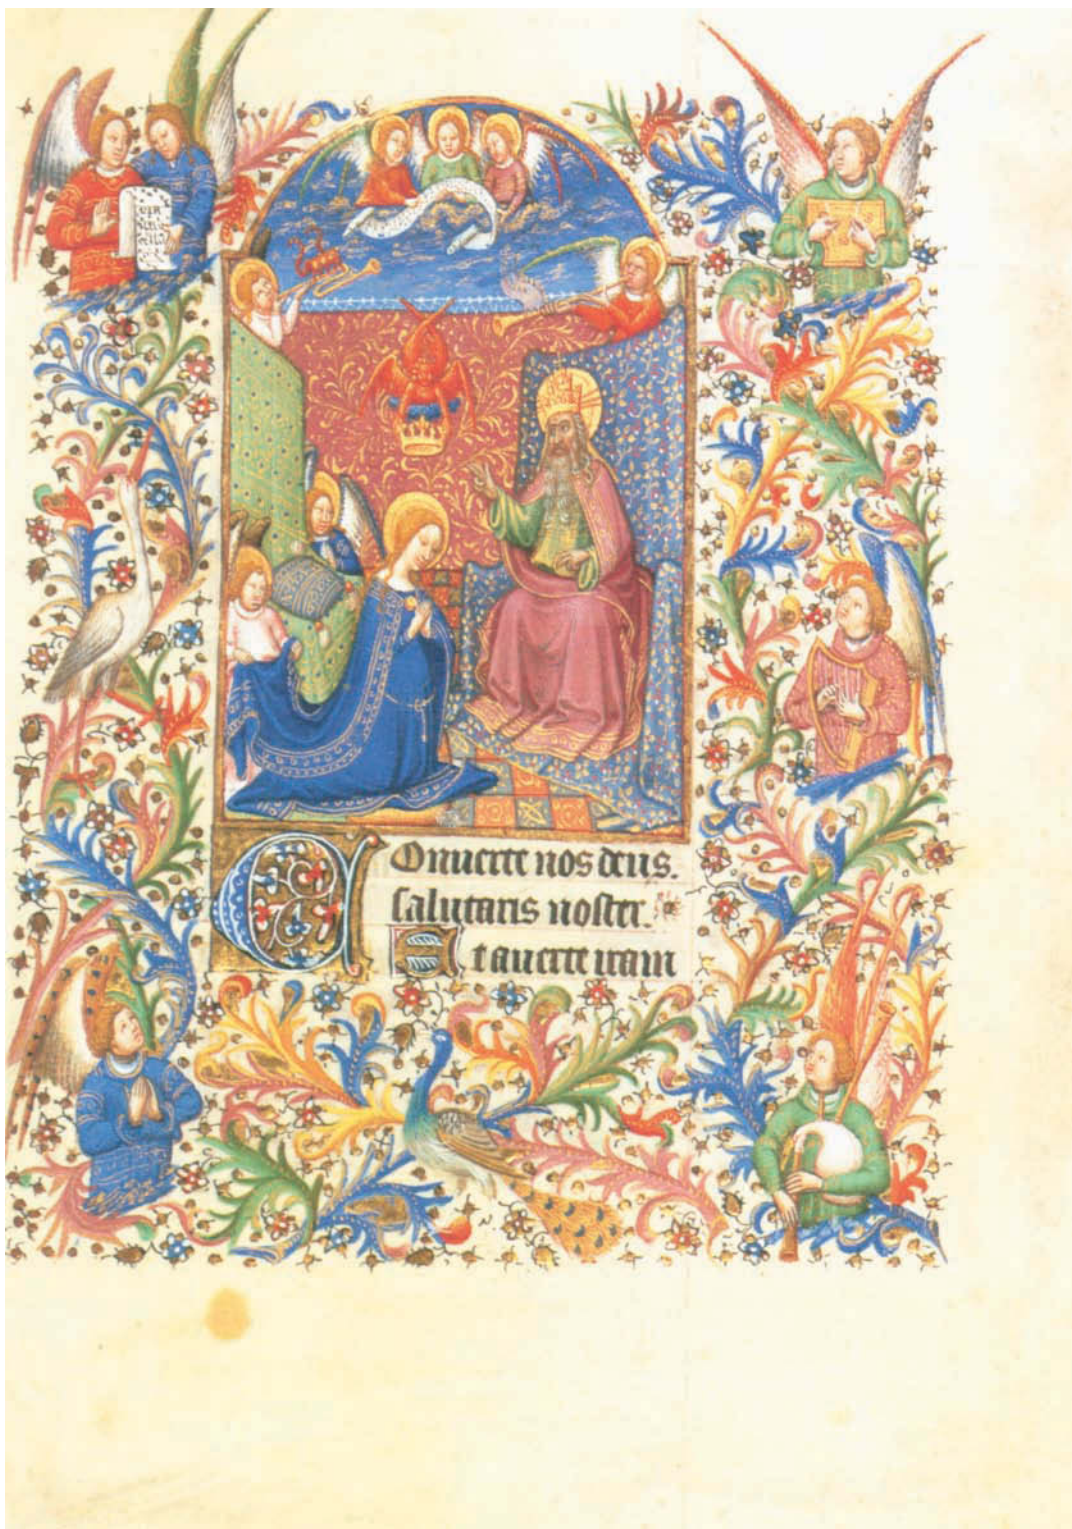 Conuerte nos deus.
salutaris noster.
Et auerte iram